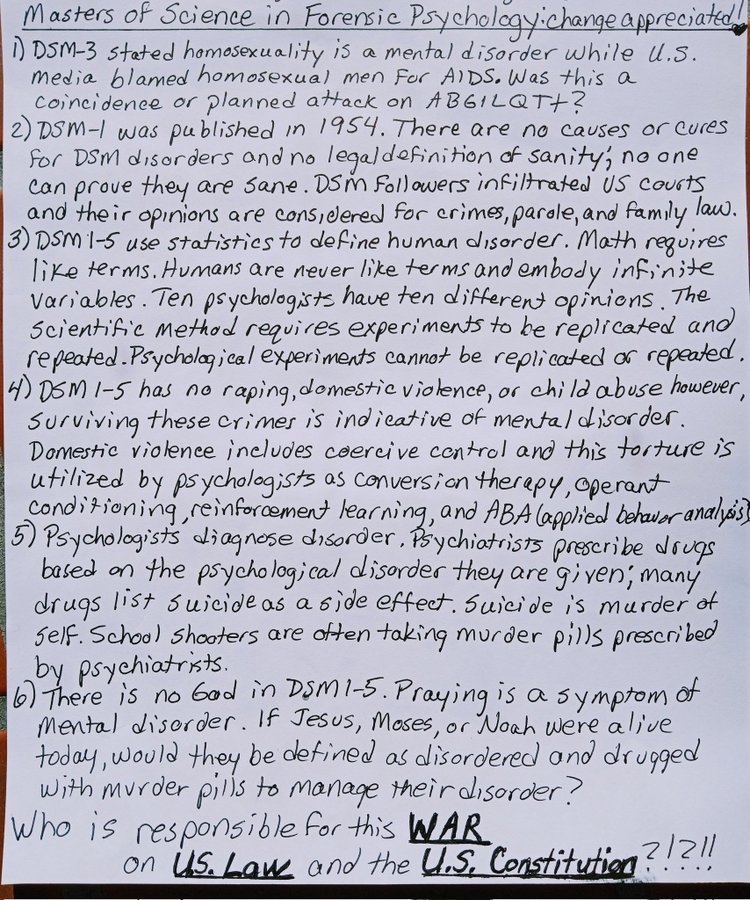 Masters of Science in Forensic Psychology:change appreciated!!
1) DSM-3 stated homosexuality is a mental disorder while U.S.
media blamed homosexual men for AIDS. Was this a
coincidence or planned attack on ABGILQT+?
2) DSM-1 was published in 1954. There are no causes or cures
for DSM disorders and no legal definition of sanity; no one
can prove they are sane. DSM followers infiltrated US courts
and their opinions are considered for crimes, parole, and family law.
3) DSM 1-5 use statistics to define human disorder. Math requires
like terms. Humans are never like terms and embody infinite
variables. Ten psychologists have ten different opinions. The
scientific method requires experiments to be replicated and
repeated. Psychological experiments cannot be replicated or repeated.
4) DSM 1-5 has no raping, domestic violence, or child abuse however,
surviving these crimes is indicative of mental disorder.
Domestic violence includes coercive control and this torture is
utilized by psychologists as conversion therapy, operant
conditioning, reinforcement learning, and ABA (applied behavior analysis)
5) Psychologists diagnose disorder. Psychiatrists prescribe drugs
based on the psychological disorder they are given; many
drugs list suicide as a side effect. Suicide is murder of
self. School shooters are often taking murder pills prescribed
by psychiatrists.
6) There is no God in DSM 1-5. Praying is a symptom of
mental disorder. If Jesus, Moses, or Noah were alive
today, would they be defined as disordered and drugged
with murder pills to manage their disorder?
Who is responsible for this WAR
on U.S. Law and the U.S. Constitution?!?!!